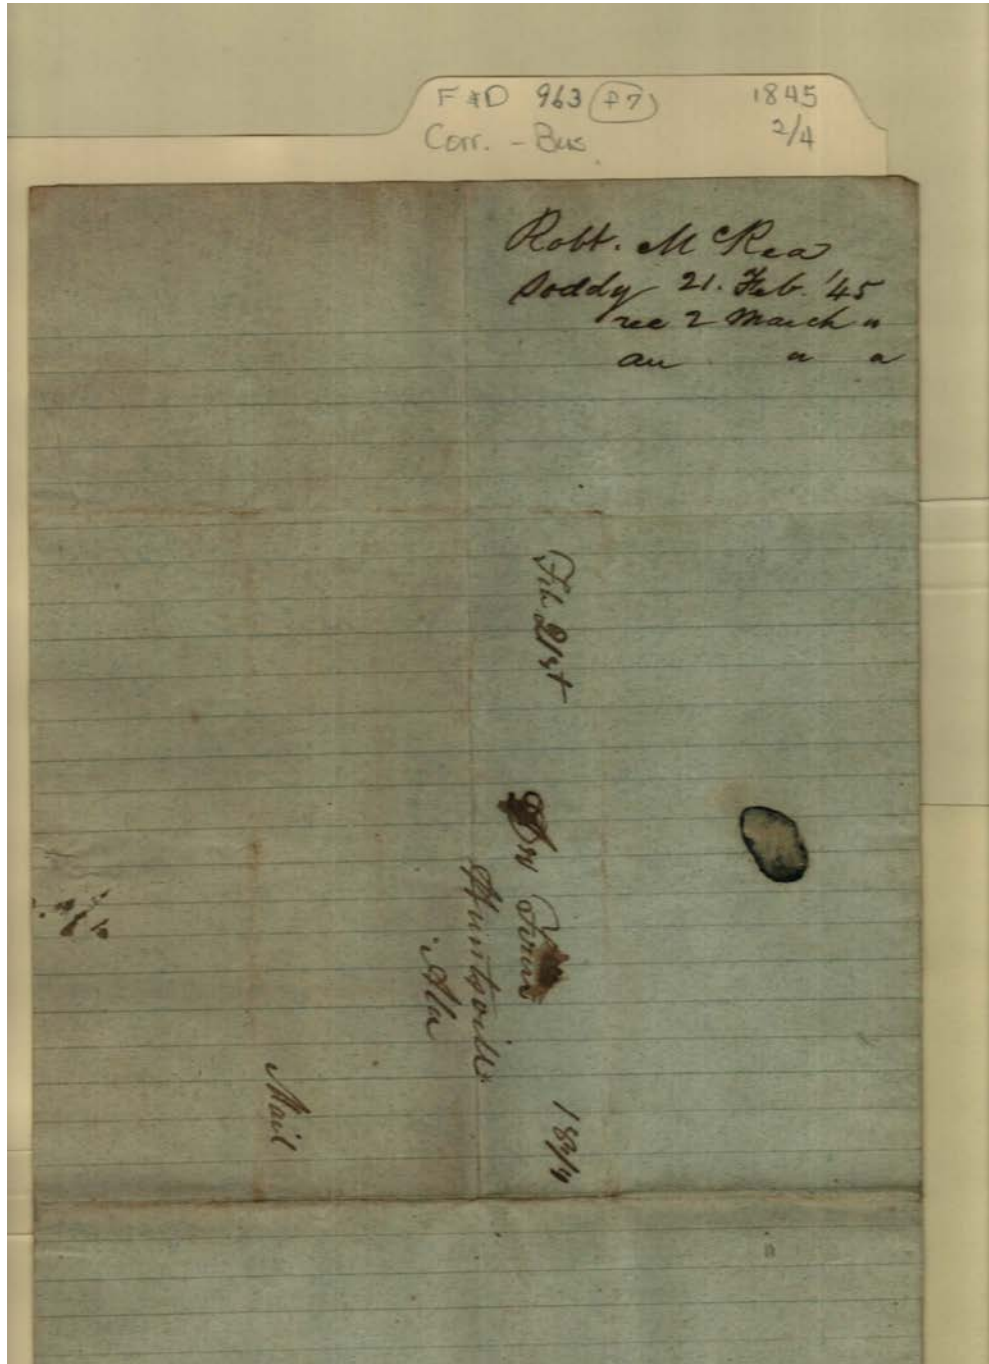 F&D 963 (F7) 1845
Corr. - Bus. 2/4
Robt. McRea
Soddy 21. Feb. '45
rec 2 March "
an " "
Feb 21st
18 3/4
Huntsville
Ala
Mail